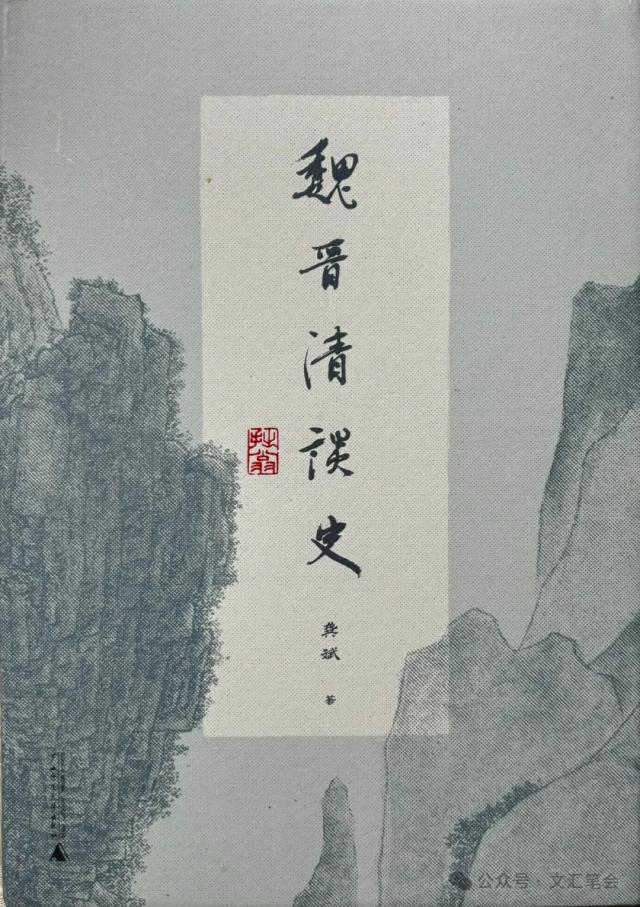 魏晋清談史
龔斌 著
公众号 · 文汇笔会